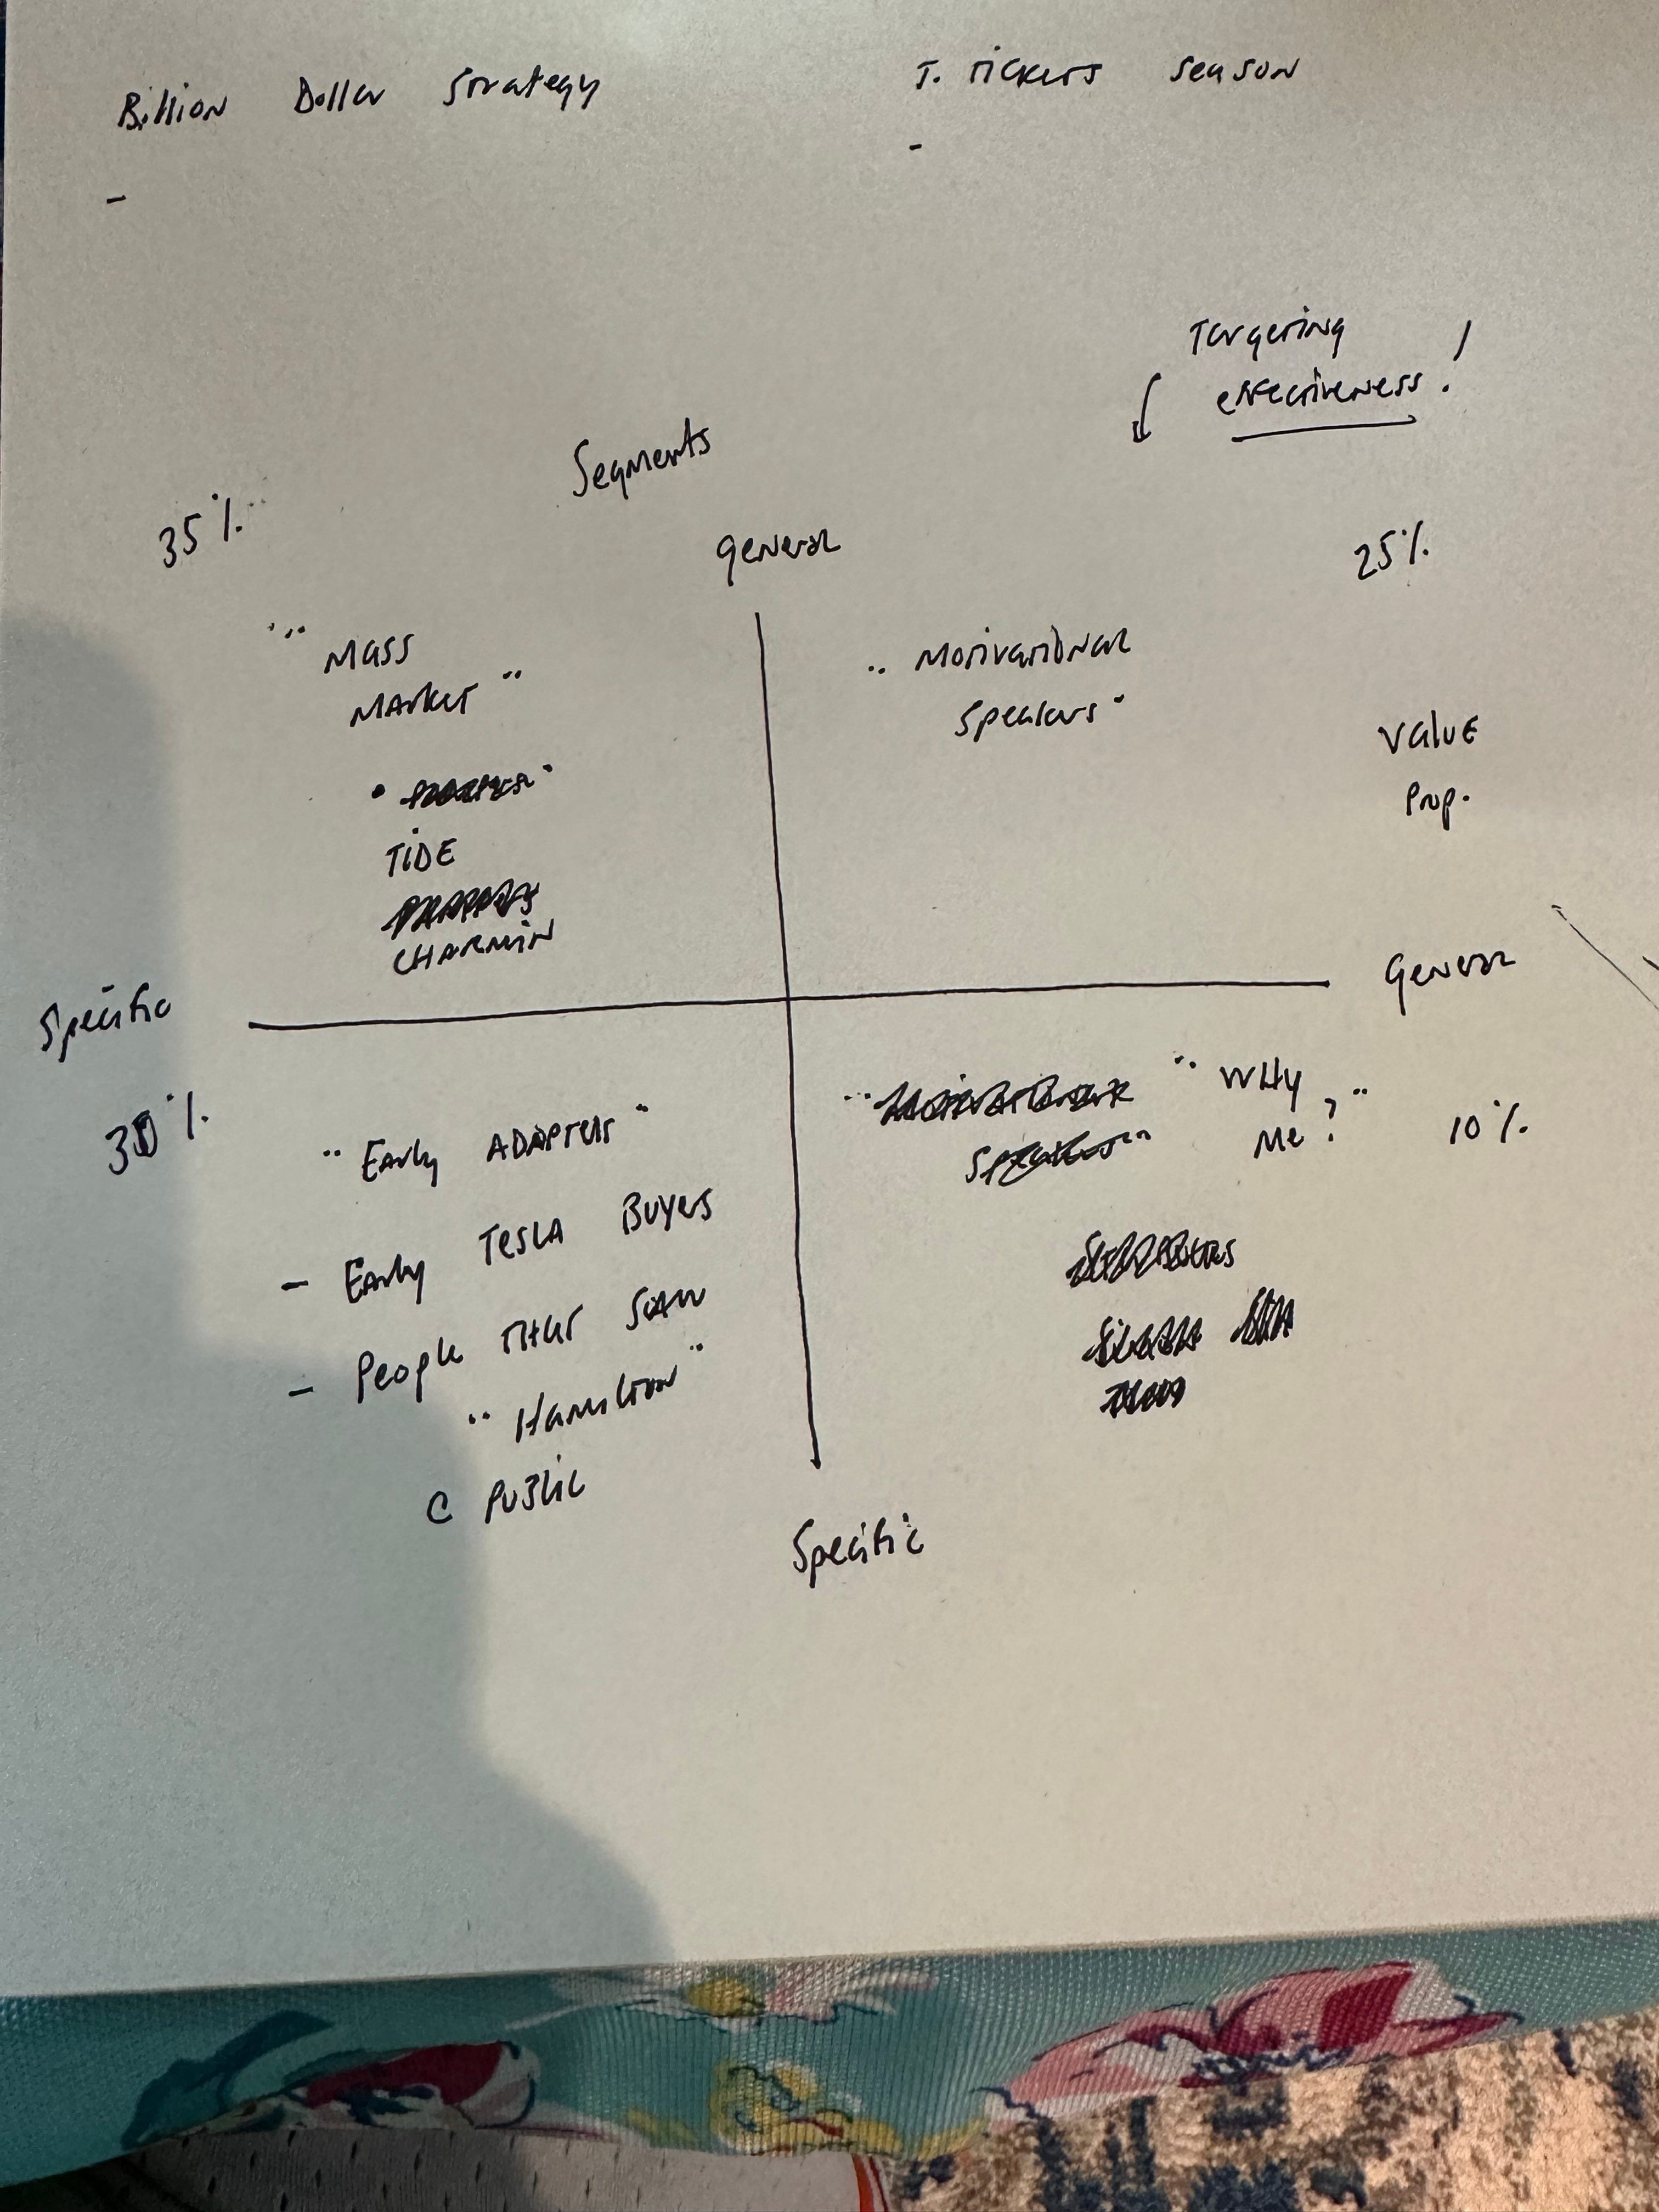 Billion Dollar Strategy
T. Tickets Season
-
-
Targeting
effectiveness!
Segments
35%
General
25%
"Mass
Market"
"Motivational
Speakers"
Value
Prop.
TIDE
CHARMIN
Specific
General
30%
"Early ADAPTERS"
"WHY
Me?"
10%
- Early TESLA Buyers
- People THAT SAW
"Hamilton"
@ PUBLIC
Specific